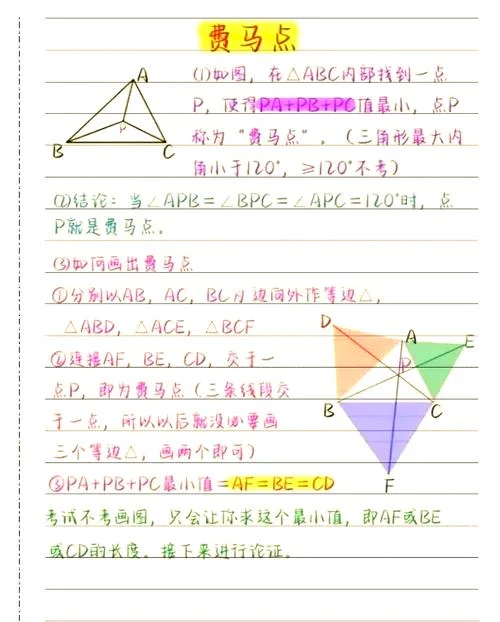 费马点
(1)如图，在△ABC内部找到一点
P，使得PA+PB+PC值最小，点P
称为“费马点”。（三角形最大内
角小于120°，≥120°不考）
A
P
B
C
(2)结论：当∠APB=∠BPC=∠APC=120°时，点
P就是费马点。
(3)如何画出费马点
①分别以AB，AC，BC为边向外作等边△，
△ABD，△ACE，△BCF
②连接AF，BE，CD，交于一
点P，即为费马点（三条线段交
于一点，所以以后就没必要画
三个等边△，画两个即可）
D
A
E
P
B
C
F
③PA+PB+PC最小值=AF=BE=CD
考试不考画图，只会让你求这个最小值，即AF或BE
或CD的长度。接下来进行论证。